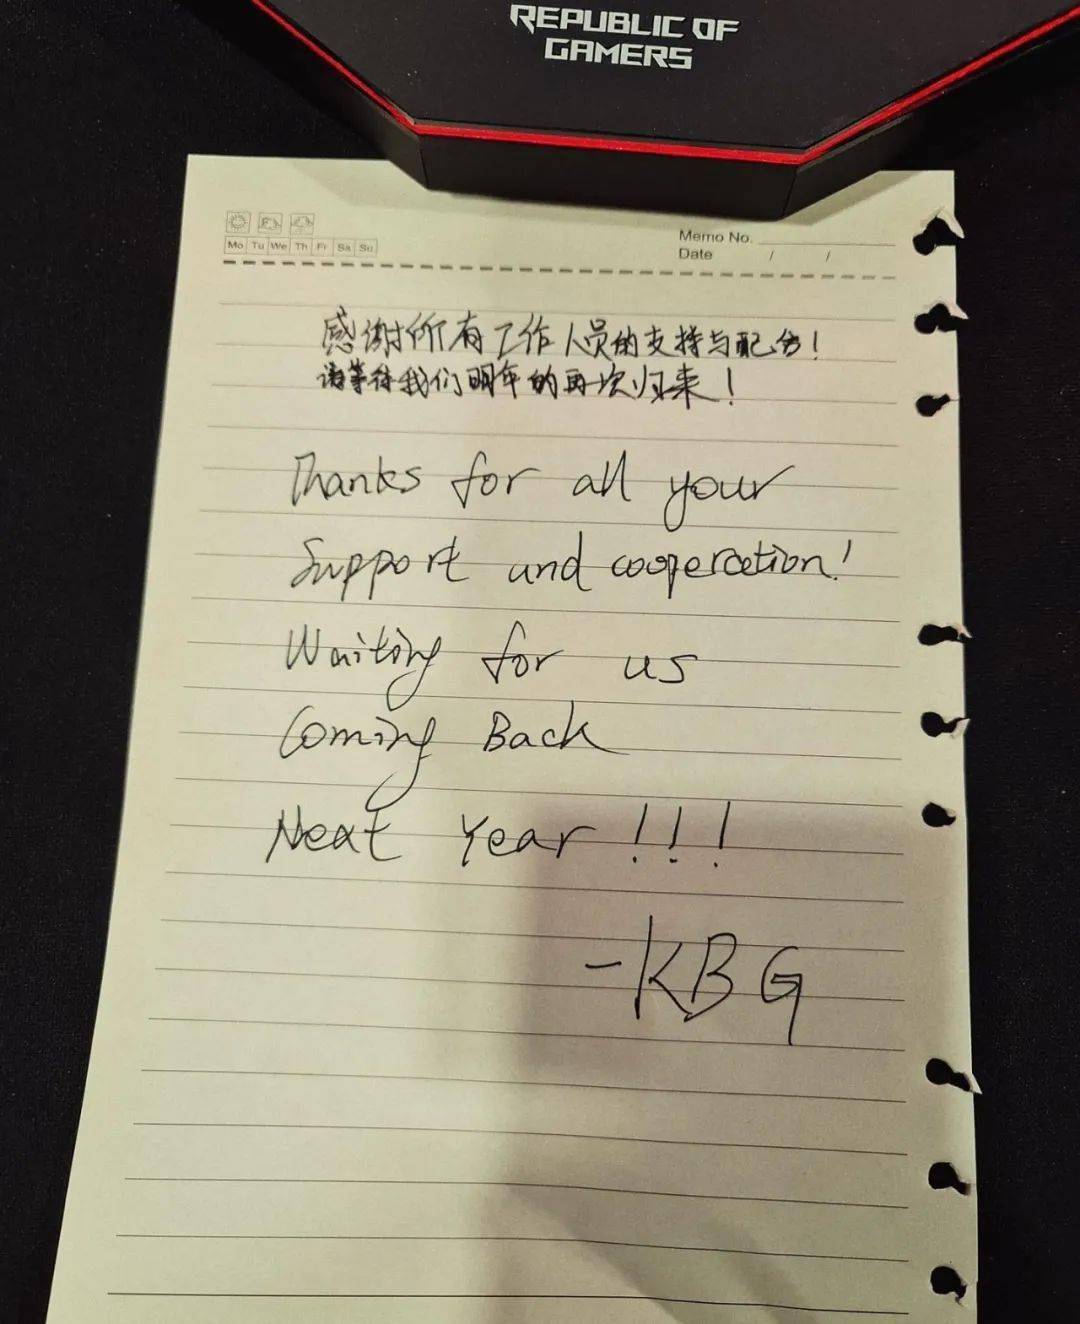 REPUBLIC OF
GAMERS
Memo No.
Mo Tu We Th Fr Sa Su
Date / /
感谢所有工作人员的支持与配合!
请等待我们明年的再次归来!
Thanks for all your
Support and cooperation!
Waiting for us
Coming Back
Next Year!!!
-KBG